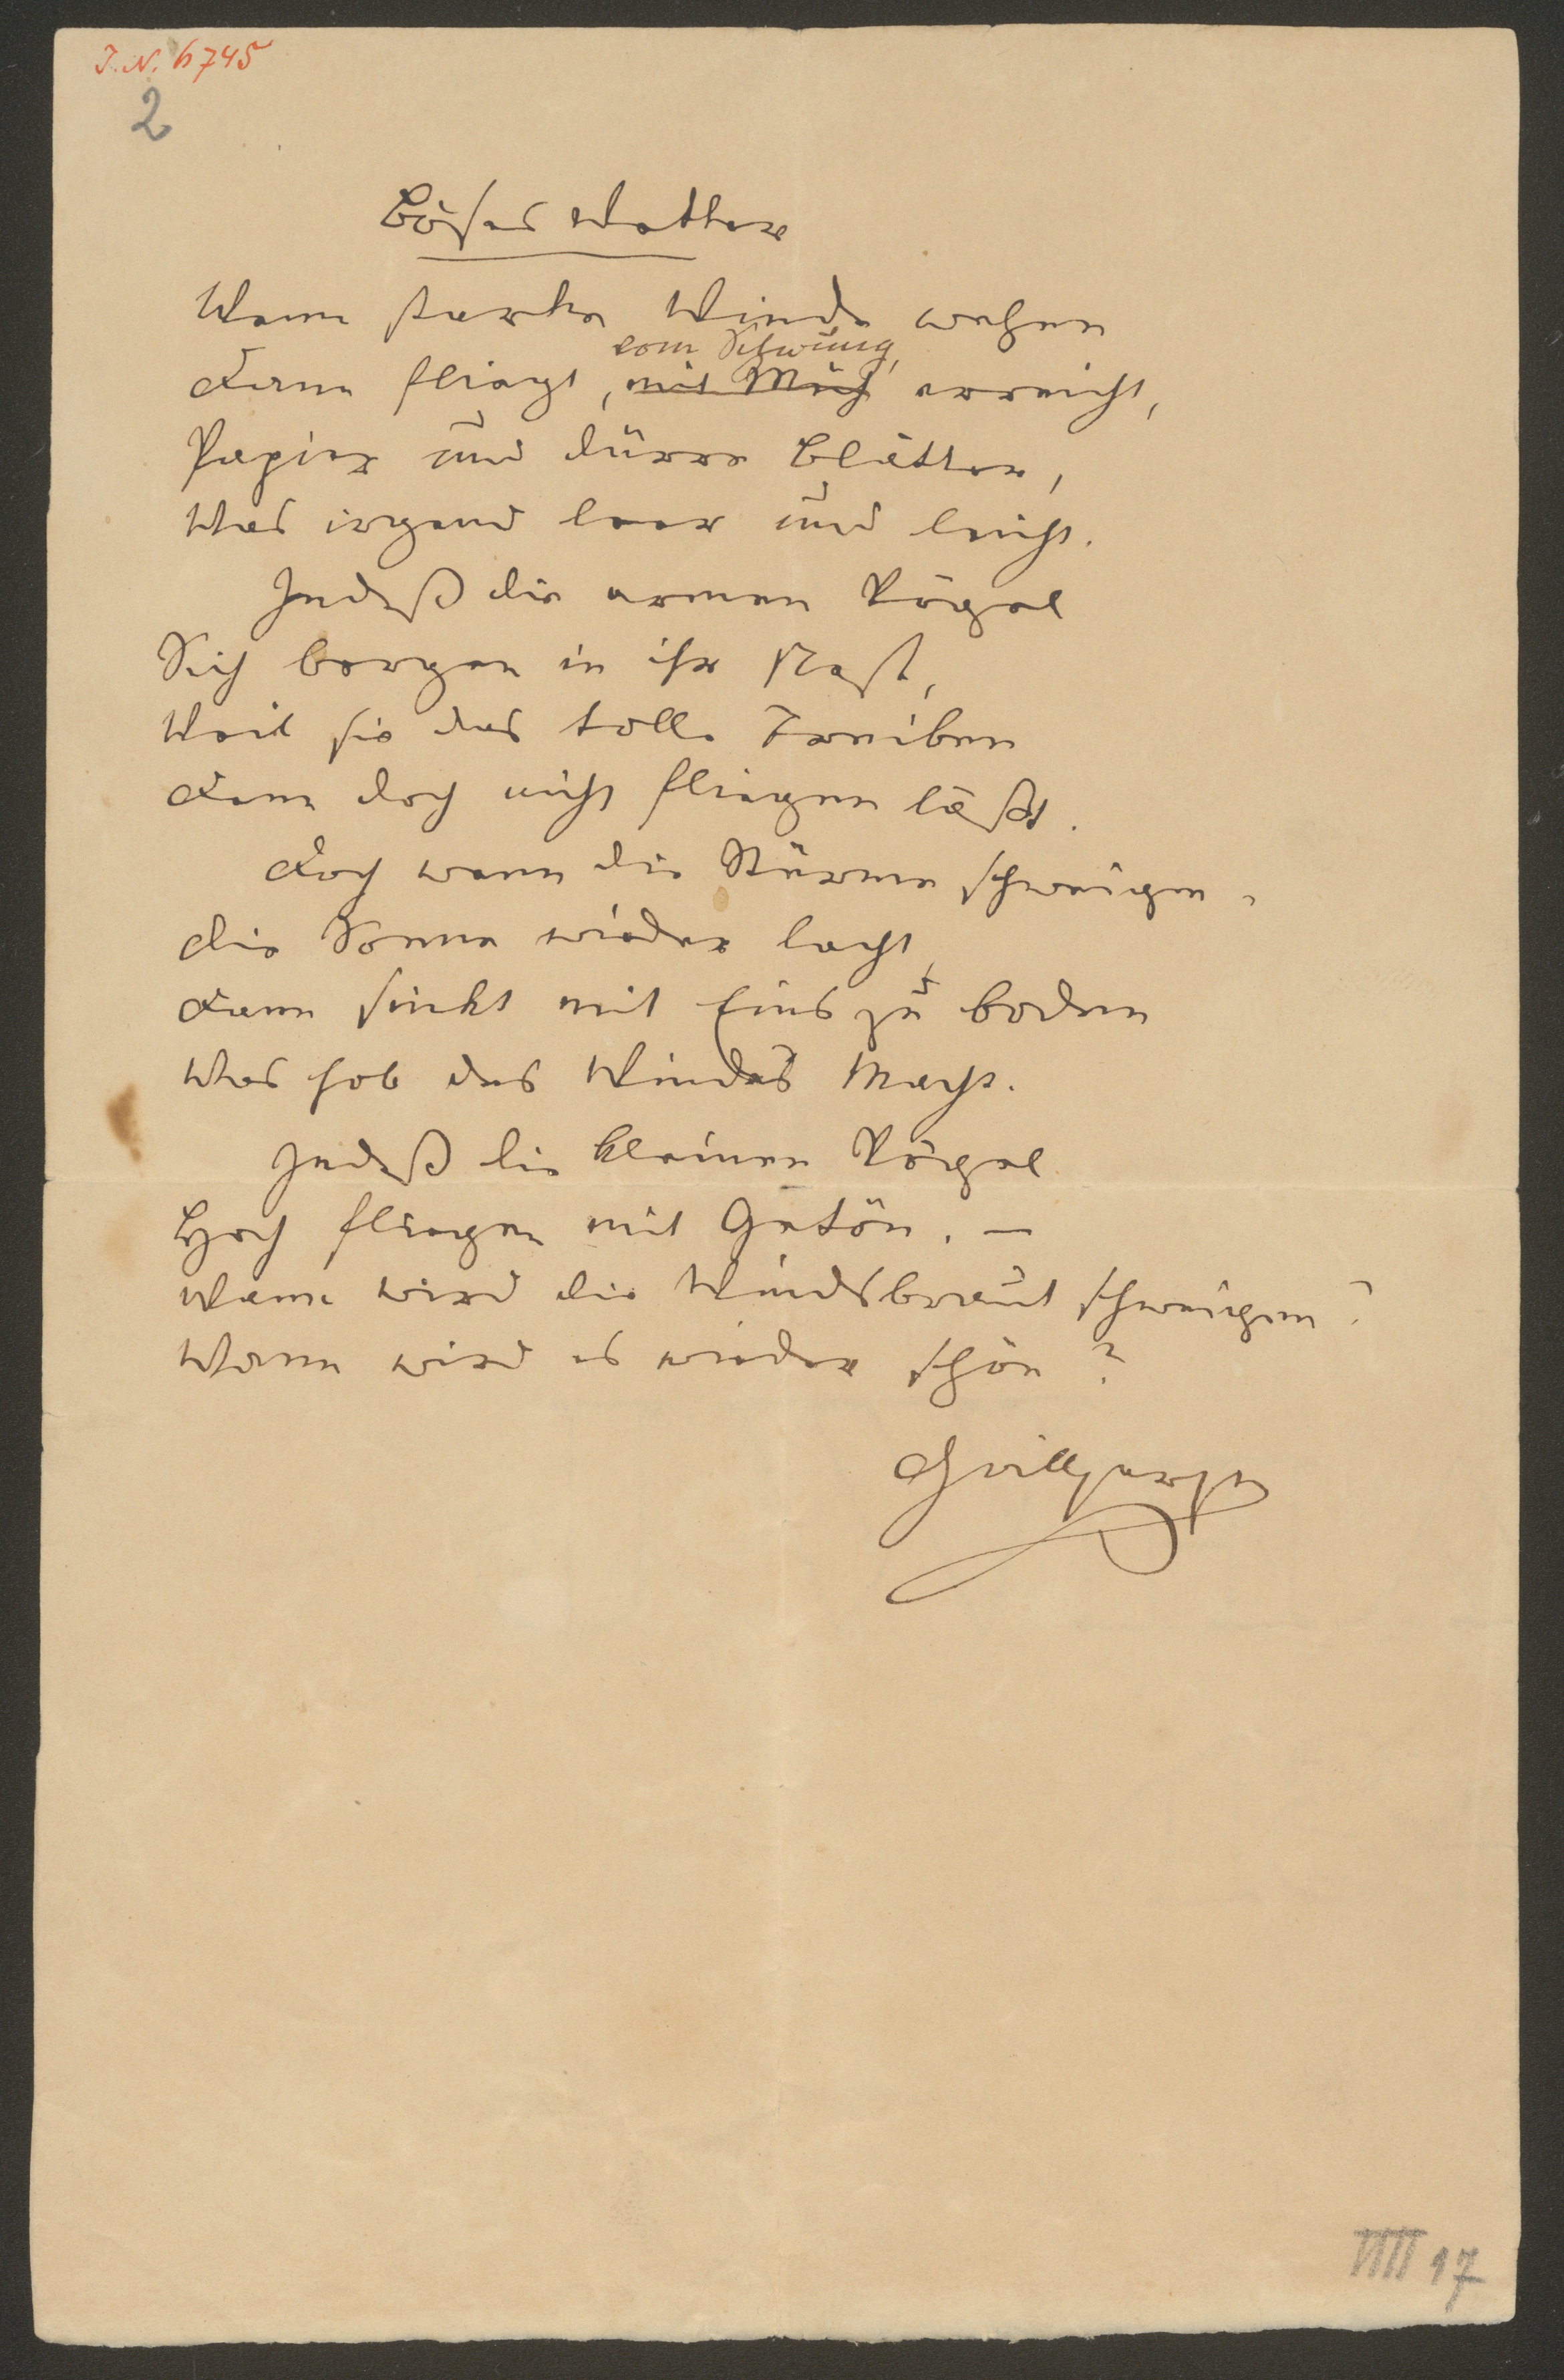 J. N. 6745
2
Böses Wetter
Wenn starke Winde wehen
vom Schwung,
Dann fliegt, mit Müh erreicht,
Papier und dürre Blätter,
Was irgend leer und leicht.
Indeß die armen Vögel
Sich bergen in ihr Nest,
Weil sie das tolle Treiben
Denn doch nicht fliegen läßt.
Doch wenn die Stürme schweigen,
die Sonne wieder lacht,
Dann sinkt mit Eins zu Boden
Was hob des Windes Macht.
Indeß die kleinen Vögel
Hoch fliegen mit Getön. —
Wann wird die Windsbraut schweigen?
Wann wird es wieder schön?
Grillparzer
17